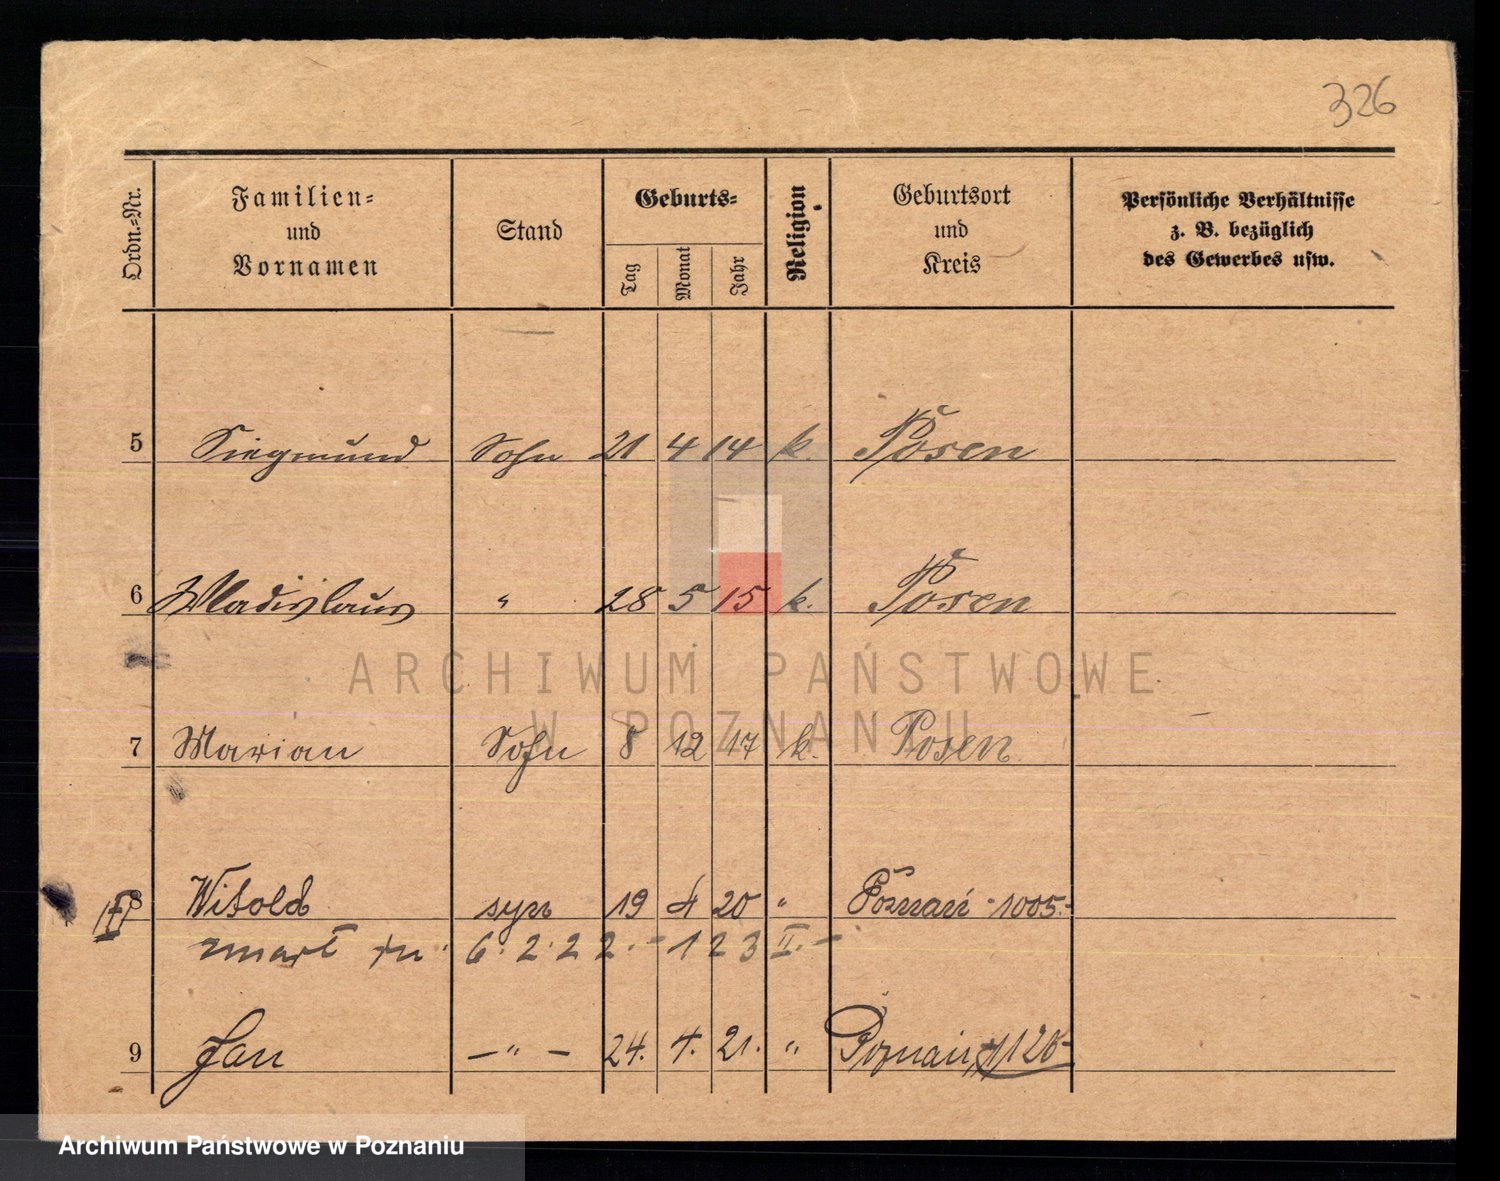 326
Ordn.=Nr.
Familien=
und
Vornamen
Stand
Geburts=
Tag
Monat
Jahr
Religion
Geburtsort
und
Kreis
Persönliche Verhältnisse
z. B. bezüglich
des Gewerbes usw.
5 Siegmund Sohn 21 4 14 k. Posen
6 Wladislaus " 28 5 15 k. Posen
ARCHIWUM PAŃSTWOWE
W POZNANIU
7 Marian Sohn 8 12 17 k. Posen
8 Witold syn 19 4 20 " Poznań - 1005.-
zmarł tu 6.2.22. - 123 II. -
9 Jan - " - 24. 4. 21. " Poznań 1120-
Archiwum Państwowe w Poznaniu